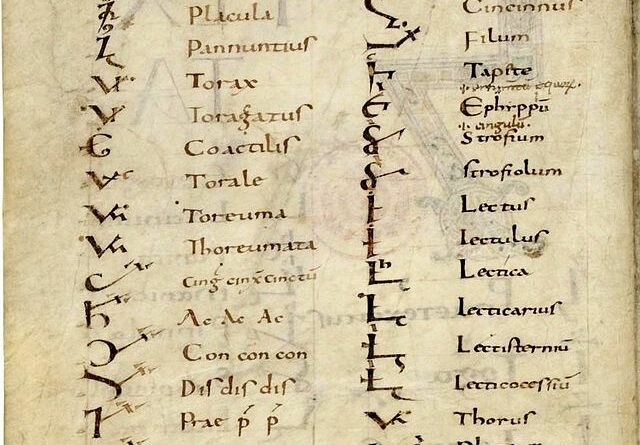 Placula
Pannuntius
Torax
Toragatus
Coactilis
Torale
Toreuma
Thoreumata
cing cinx cinctū
Ac Ac Ac
Con con con
Dis dis dis
Prae p̄ p̄
Cincinnus
Filum
Tapite
Ephippū
i. cingulū
Strofium
strofiolum
Lectus
Lectulus
Lectica
Lecticarius
Lectisterniū
Lecticocessiū
Thorus